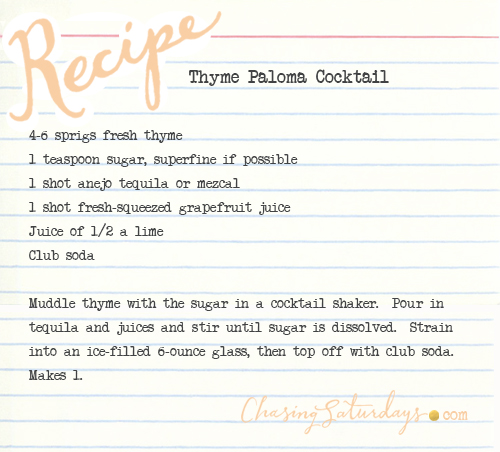 Recipe
Thyme Paloma Cocktail
4-6 sprigs fresh thyme
1 teaspoon sugar, superfine if possible
1 shot anejo tequila or mezcal
1 shot fresh-squeezed grapefruit juice
Juice of 1/2 a lime
Club soda
Muddle thyme with the sugar in a cocktail shaker. Pour in
tequila and juices and stir until sugar is dissolved. Strain
into an ice-filled 6-ounce glass, then top off with club soda.
Makes 1.
ChasingSaturdays.com